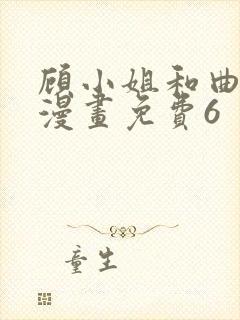 顾小姐和曲
漫畫免費6
童生